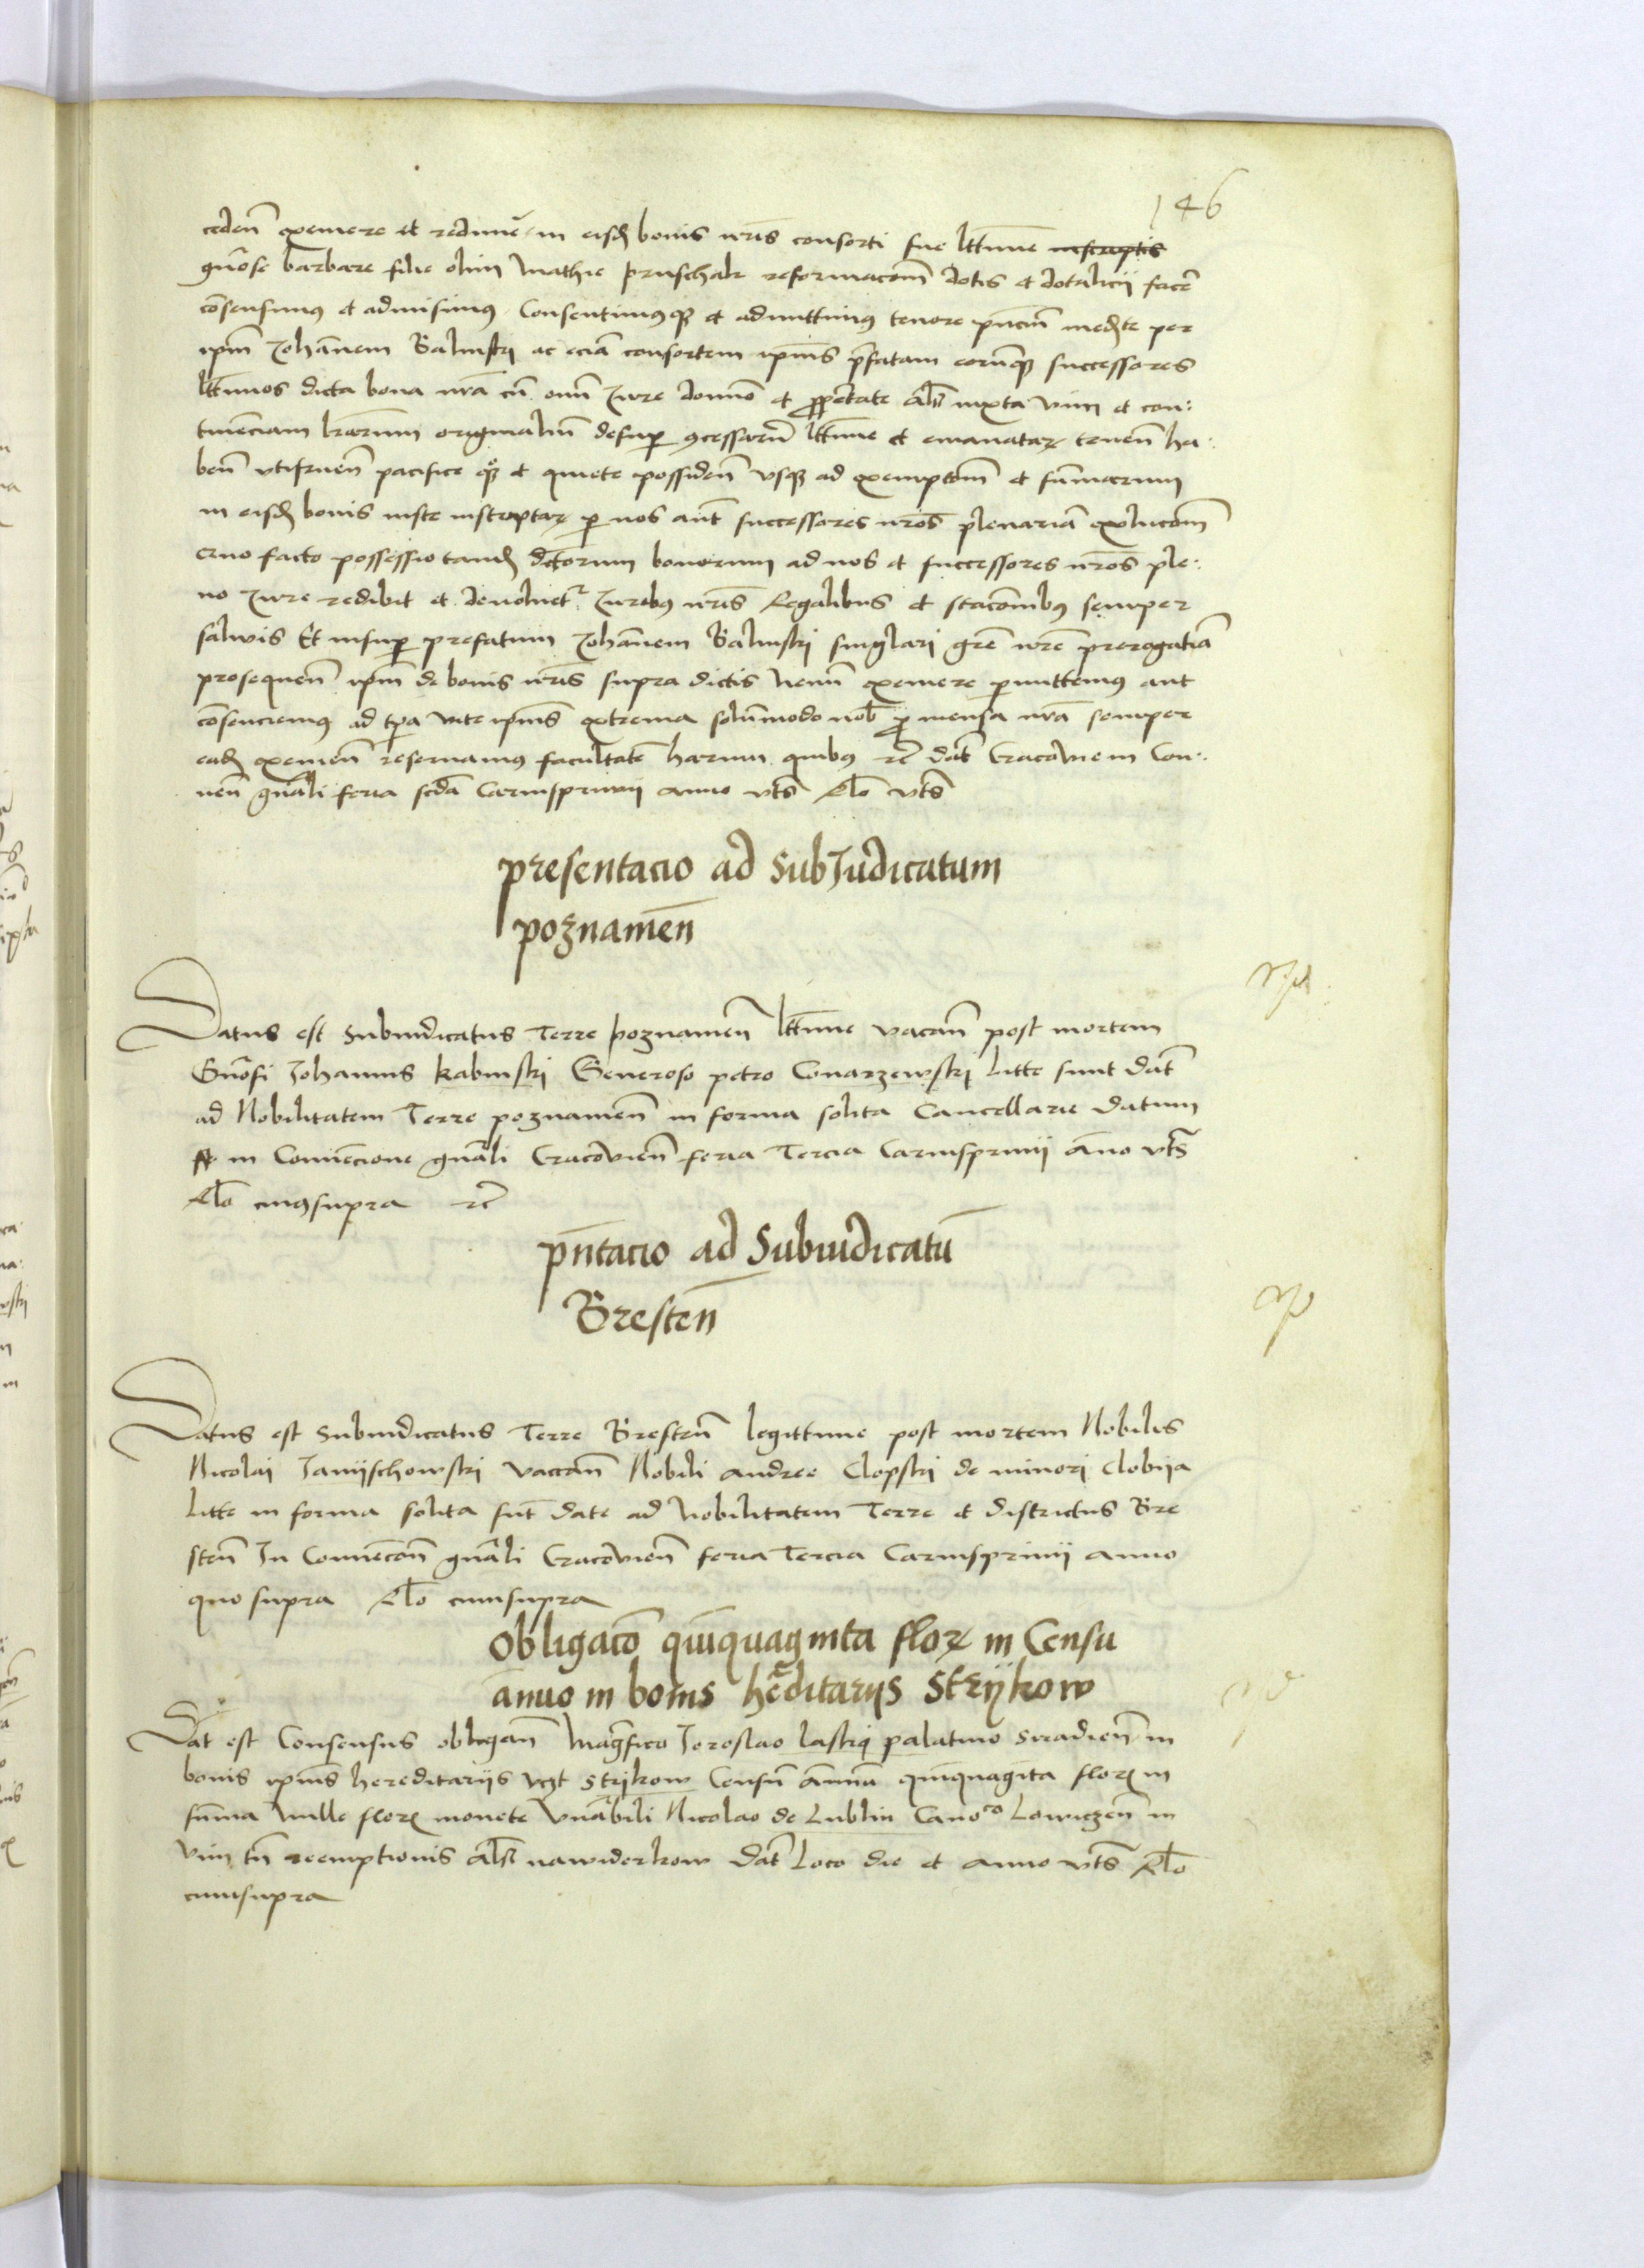 146
ceden exemere et redime in eisd bonis nris consorti sue lttime inscriptis
gnose barbare filie olim Mathie pruschak reformacom dotis et dotalicii facer
consensimus et admisimus Consentimusque et admittimus tenore pncium mediate per
ipm Johannem Balinski ac eciam consortem ipius prefatam eorumque successores
lttimos dicta bona nra cum omni Jure dominio et proprietate als iuxta vim et con:
tinenciam lrarum originalium desuper concessarum lttime et emanatarum tenen ha:
ben utifruen pacifice que et quiete possiden usque ad exempcom et summarum
in eisd bonis iuste inscriptarum per nos aut successores nros plenariam exolucom
Quo facto possessio tandem dictorum bonorum ad nos et successores nros ple:
no Jure redibit et devolvetur Juribus nris Regalibus et stacombus semper
salvis Et insuper prefatum Johannem Balinski singlari gre nre prerogativa
prosequen ipm de bonis nris supra dictis nemini exemere permittemus aut
consenciemus ad tpa vite ipius extrema solummodo nob pro mensa nra semper
ead exemen reservamus facultatem harum quibus etc dat Cracovie in Con:
ven gnali feria scda Carnisprivii anno uts Rlo uts
presentacio ad SubJudicatum
poznamen
Datus est Subiudicatus Terre poznamen lttime vacan post mortem
Gnosi Johannis Kabinski Generoso petro Conarzewski litte sunt dat
ad Nobilitatem Terre poznamen in forma solita Cancellarie datum
in Convencione gnali Cracovien feria Tercia Carnisprivii anno uts
Rlo cuius supra etc
pntacio ad Subiudicatu
Bresten
Datus est Subiudicatus Terre Bresten legittime post mortem Nobilis
Nicolai Jamijschowski vacan Nobili andree Clopski de minori Clobija
litte in forma solita sunt date ad Nobilitatem Terre et districtus Bre
sten In Convencon gnali Cracovien feria Tercia Carnisprivii anno
quo supra Rlo cuius supra
Obligaco quinquaginta flor in Censu
annuo in bonis hereditariis Strijkow
Dat est Consensus obligan Magnifico Jeroslao laski palatino Siradien in
bonis ipius hereditariis vczt Strijkow Censum annuum quinquaginta flor in
summa mille flor monete Vnabili Nicolao de Lublin Canoco Lowiczen in
vim tn reemptionis als nawiderkow dat loco die et anno uts Rlo
cuius supra